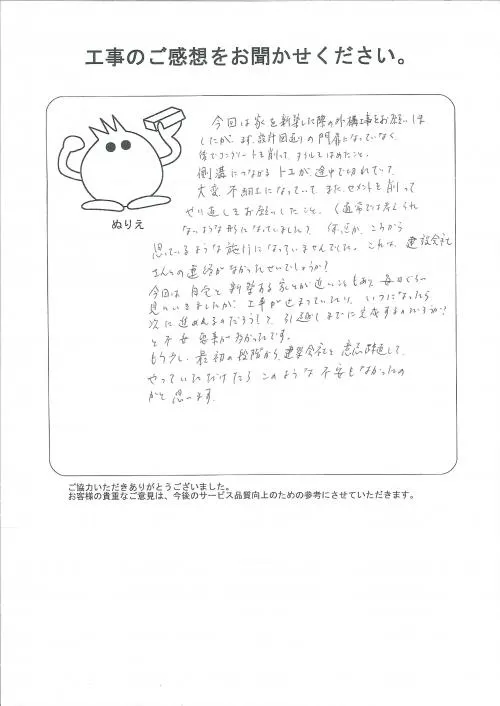 工事のご感想をお聞かせください。
今回は家を新築した際の外構工事をお願いしま
したが、まず、設計図通りの門扉になっていなく、
後でコンクリートを削って、
側溝につながる トユが、途中で切れていて、
大変 不細工になっていて、また、セメントを削って
やり直しをお願いしたこと、(通常では考えられ
ないような形になっていました) 何回か、こちらから
思っているような施行になっていませんでした。これは、建設会社
さんとの連絡がなかったせいでしょうか?
今回は 自宅と 新築する家とが近いこともあり、毎日ぐらい
見にいきましたが、工事が止まっていたり、いつになったら
次に進めるのだろうして、引越しまでに完成するのだろうか?
と不安 要素が多かったです。
もう少し、最初の段階から 建築会社と 意思疎通して
やっていただけたら このような 不安もなかったの
かと 思います。
ぬりえ
ご協力いただきありがとうございました。
お客様の貴重なご意見は、今後のサービス品質向上のための参考にさせていただきます。